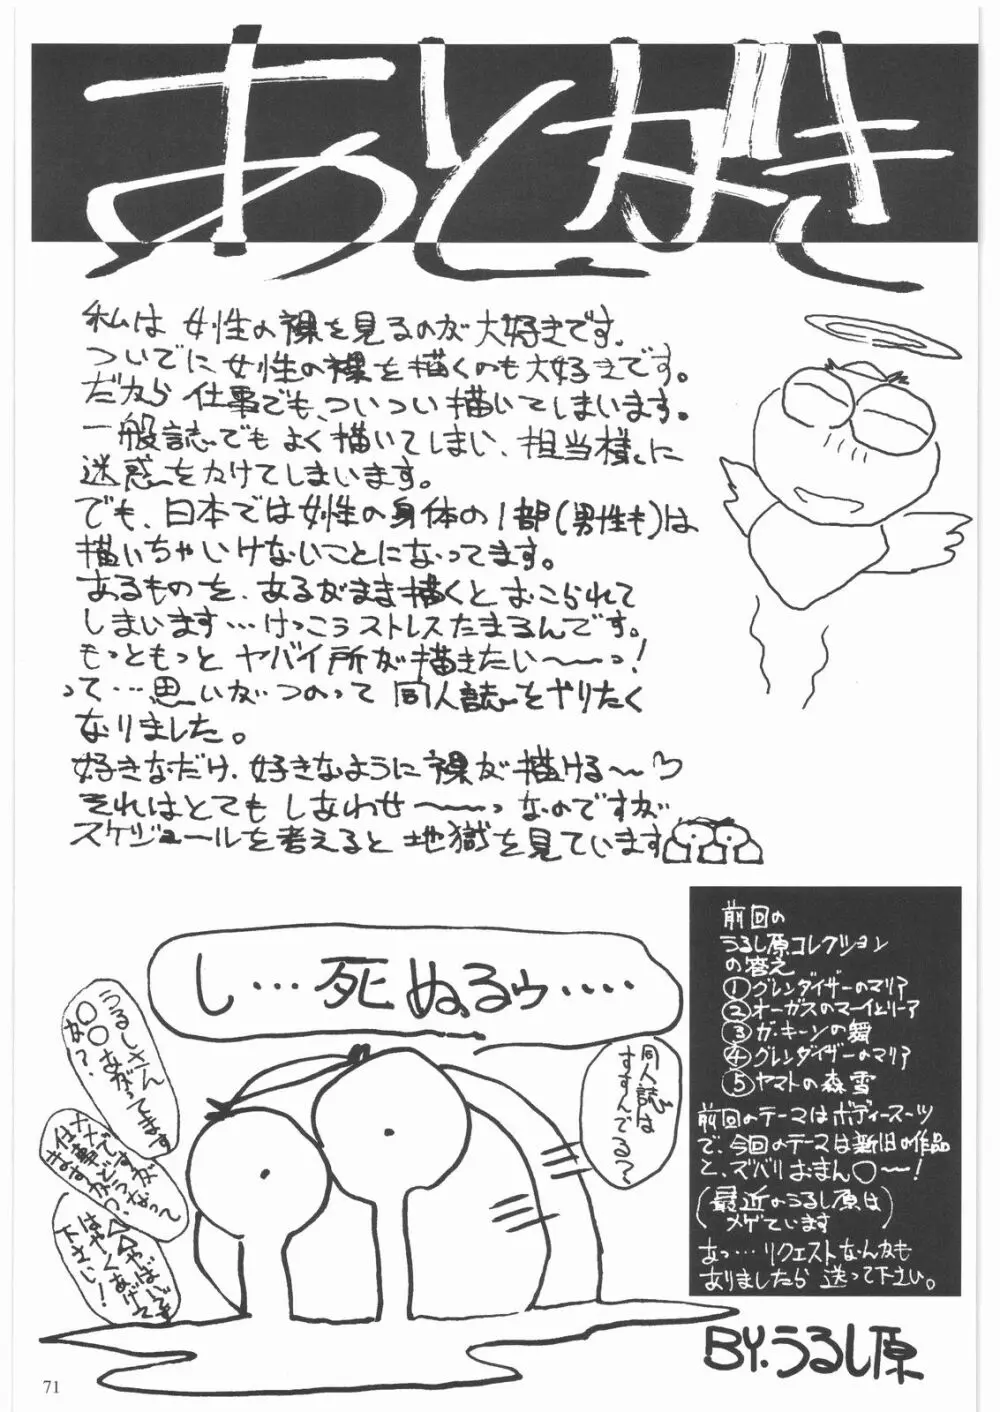 あとがき
私は女性の裸を見るのが大好きです。
ついでに女性の裸を描くのも大好きです。
だから仕事でも、ついつい描いてしまいます。
一般誌でもよく描いてしまい、担当様に
迷惑をかけてしまいます。
でも、日本では女性の身体の1部(男性も)は
描いちゃいけないことになってます。
あるものを、あるがまま描くとおこられて
しまいます…けっこうストレスたまるんです。
もっともっとヤバイ所が描きたい〜〜っ!
って…思いがつのって同人誌をやりたく
なりました。
好きなだけ、好きなように裸が描ける〜♡
それはとてもしあわせ〜〜っなのですが
スケジュールを考えると地獄を見ています
し…死ぬるゥ……
うるしさん
〇〇あがってます
か?
同人誌は
すすんでる?
はやく
あげて
下さい!
前回の
うるし原コレクション
の答え
①グレンダイザーのマリア
②オーガスのマーイとリーア
③ガ・キーンの舞
④グレンダイザーのマリア
⑤ヤマトの森雪
前回のテーマはボディースーツ
で、今回のテーマは新旧の作品
と、ズバリおまん〇〜!
(最近のうるし原は
メゲています)
あっ…リクエストなんかも
ありましたら送って下さい。
BY.うるし原
71